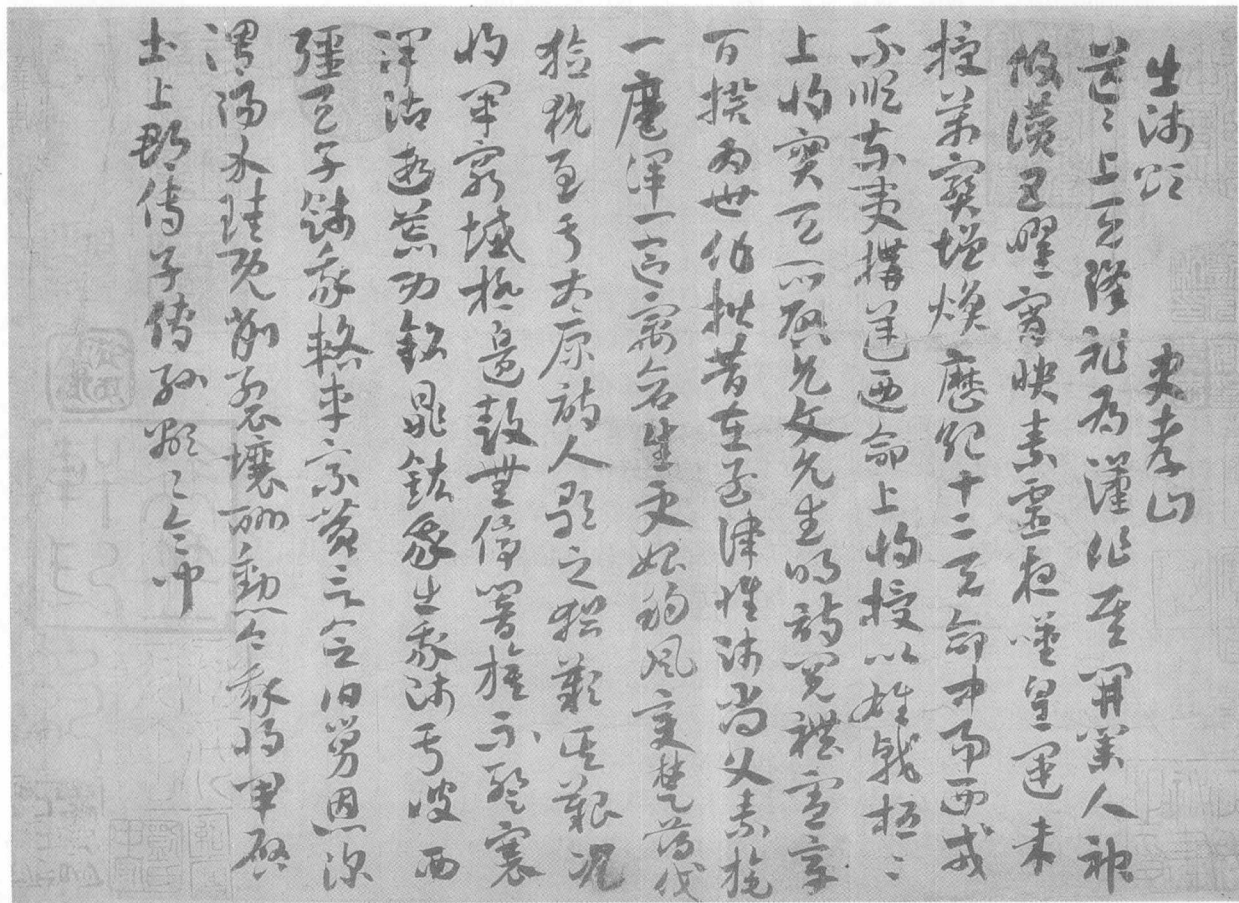 出師頌 史孝山
茫々上天降祚為漢作基開業人神
攸讚五曜宵映素靈夜嘆皇運來
授萬寶增煥歷紀十二天命中易西戎
不順東夷構逆乃命上將授以雄戟桓々
上將寔天所啟允文允武明詩閱禮憲章
百揆為世作楷昔在孟津惟師尚父素旄
一麾渾一區宇蒼生更始朔風變楚薄伐
獫狁至于太原詩人歌之猶歎其艱況
將軍窮城極邊鼓無停響旗不蹔褰
澤沾遐荒功銘鼎鉉我出我師于彼西
疆天子餞我輅車乘黃言念伯舅恩深
渭陽介珪既削裂壤酬勳今我將軍啟
土上郡傳子傳孫顯々令問